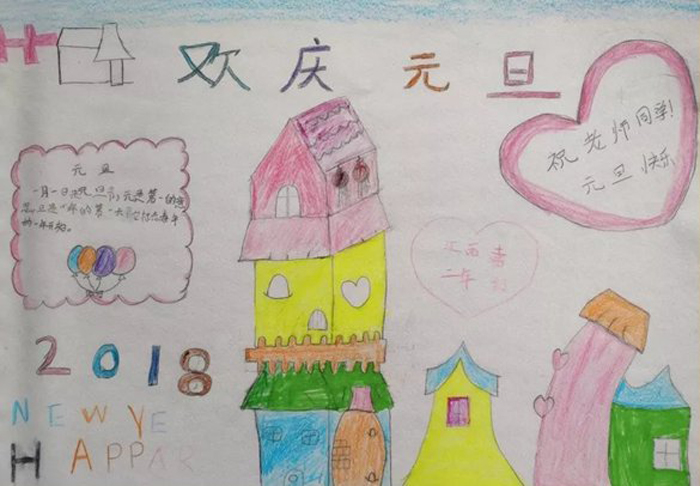 欢庆元旦
祝老师同学!
元旦快乐
元旦
一月一日是元旦节,元是第一的意
思,旦是一年的第一天
的一年开始。
二年
2018
NEW YE
HAPPAR